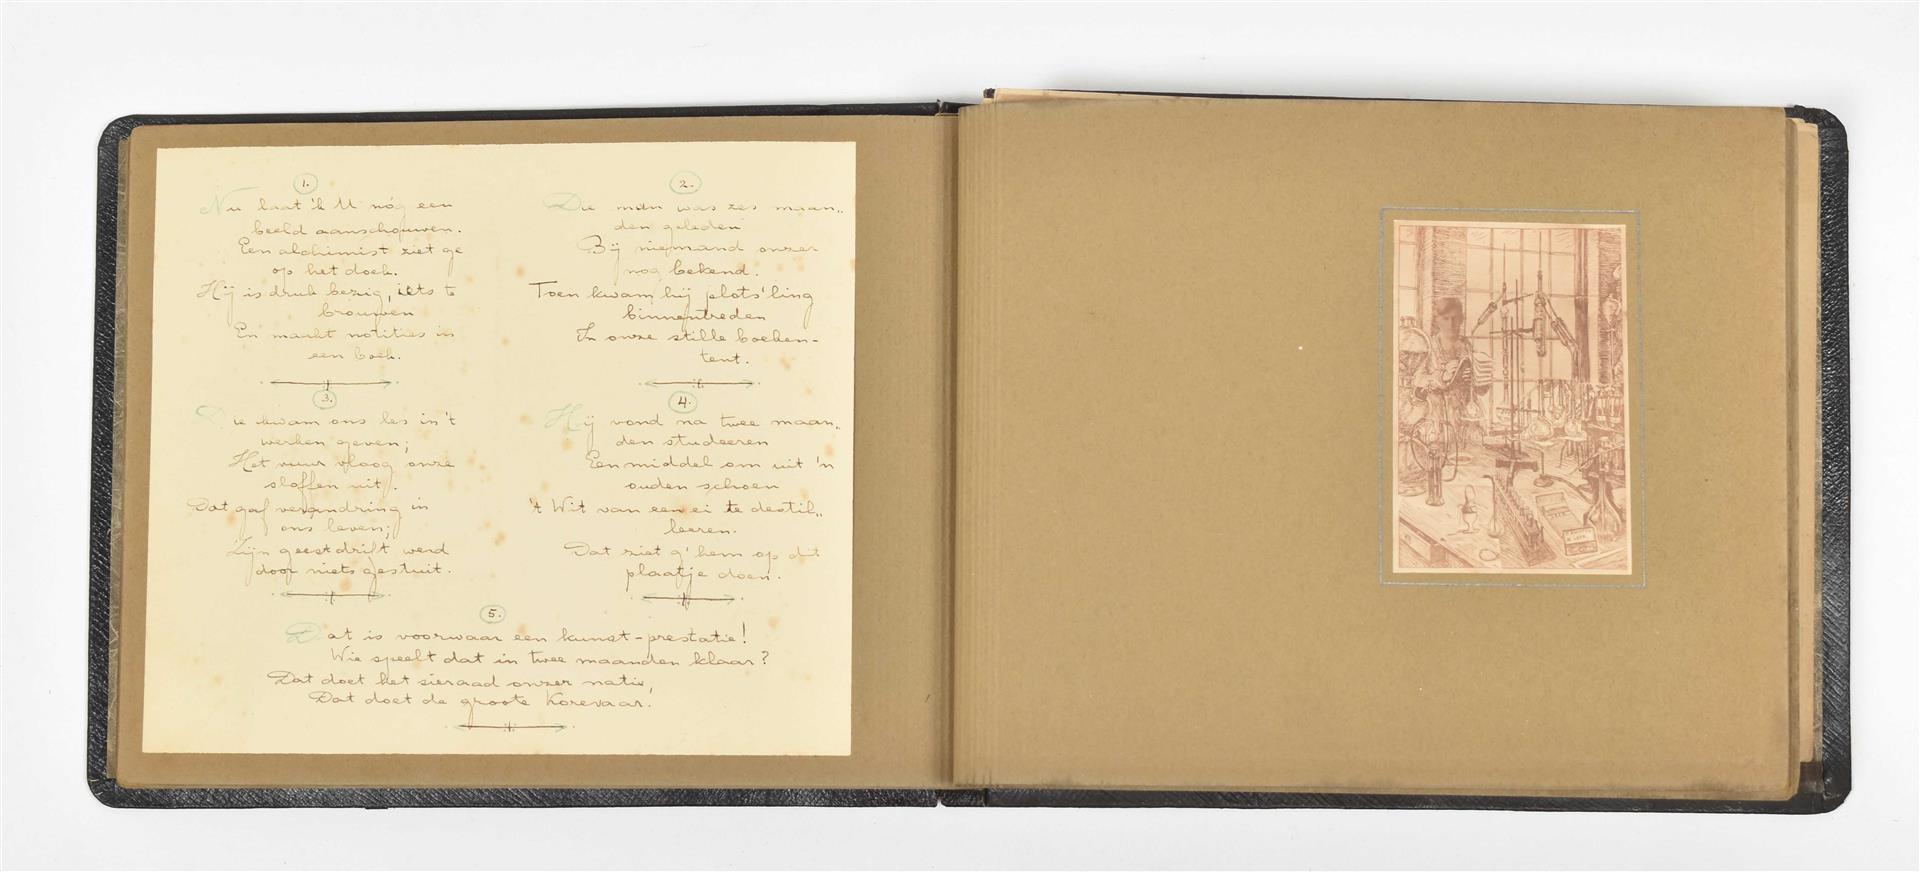 1.
Nu laat 'k U nóg een
beeld aanschouwen.
Een alchimist ziet ge
op het doek.
Hij is druk bezig, iets te
brouwen
En maakt notities in
een boek.
2.
Die man was zes maan„
den geleden
Bij niemand onzer
nog bekend.
Toen kwam hij plots'ling
binnentreden
In onze stille boeken-
tent.
3.
Die kwam ons les in 't
werken geven;
Het vuur vloog onze
sloffen uit.
Dat gaf verandring in
ons leven;
Zijn geestdrift werd
door niets gestuit.
4
Hij vond na twee maan„
den studeeren
Een middel om uit 'n
ouden schoen
't Wit van een ei te destil„
leeren.
Dat ziet g' hem op dit
plaatje doen.
5.
Dat is voorwaar een kunst-prestatie!
Wie speelt dat in twee maanden klaar?
Dat doet het sieraad onzer natie,
Dat doet de groote Korevaar.